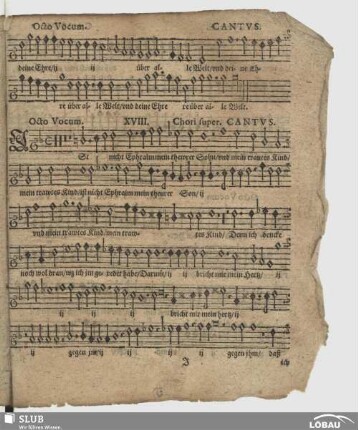 Octo Vocum. CANTVS.
deine Ehre/ij ij über al- le Welt/vnd dei- ne Eh-
re über al- le Welt/vnd deine Ehre re über al- le Welt.
Octo Vocum. XVIII. Chori super. CANTVS.
St nicht Ephraim mein thewrer Sohn/vnd mein trawtes Kind/
mein trawtes Kind/ist nicht Ephraim mein thewrer Son/ij
vnd mein trawtes Kind/mein traw- tes Kind/ Denn ich dencke
noch wol dran/was ich jm geredet habe/Darumb/ij ij bricht mir mein Hertz/ij
ij ij ij bricht mir mein hertz/ij
ij gegen jm/ij ij ij ij gegen jhm/ daß
J ich
SLUB
Wir führen Wissen.
LÖBAU